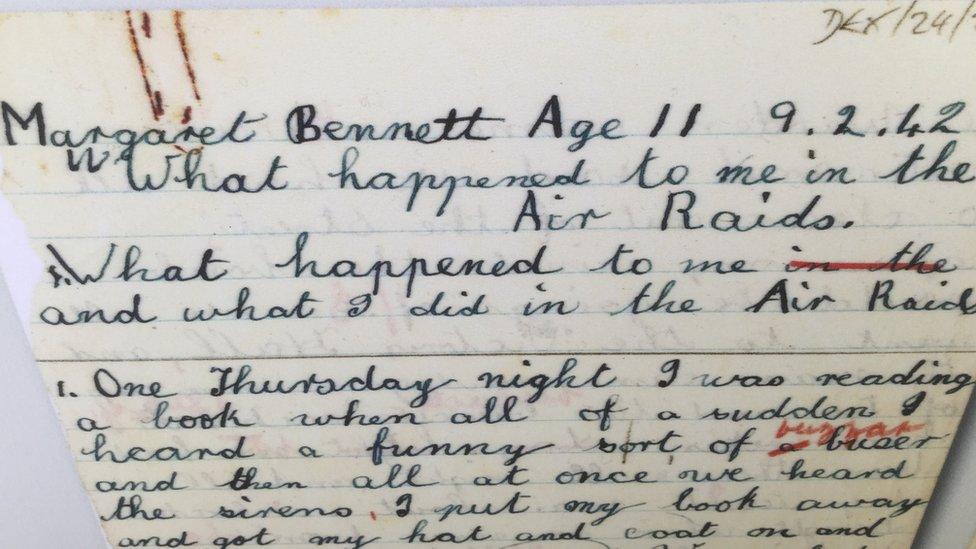 DEX/24/
Margaret Bennett Age 11 9.2.42
W What happened to me in the
Air Raids.
1. What happened to me in the
and what I did in the Air Raid
1. One Thursday night I was reading
a book when all of a sudden I
buzzar
heard a funny sort of a buser
and then all at once we heard
the sirens, I put my book away
and got my hat and coat on and